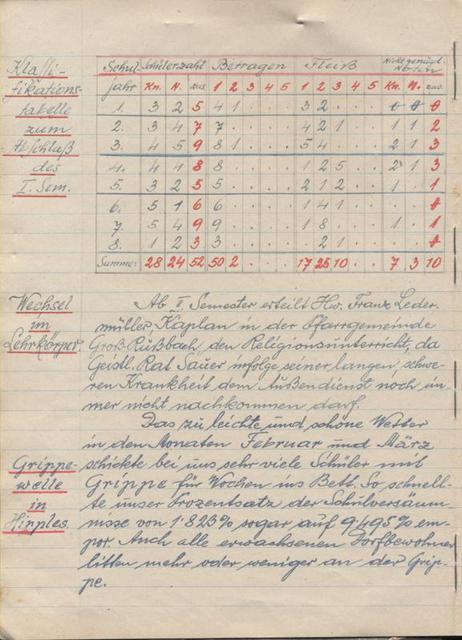 Klassi-
fikations-
tabelle
zum
Abschluß
des
I. Sem.
Schul- Schülerzahl Betragen Fleiß Nicht genügd. Noten
jahr Kn. M. zus. 1 2 3 4 5 1 2 3 4 5 Kn. M. zus.
1. 3 2 5 4 1 . . . 3 2 . . . 0 0 0
2. 3 4 7 7 . . . . 4 2 1 . . 1 1 2
3. 4 5 9 8 1 . . . 5 4 . . . 2 1 3
4. 4 4 8 8 . . . . 1 2 5 . . 2 1 3
5. 3 2 5 5 . . . . 2 1 2 . . 1 . 1
6. 5 1 6 6 . . . . 1 4 1 . . . . 0
7. 5 4 9 9 . . . . 1 8 . . . 1 . 1
8. 1 2 3 3 . . . . . 2 1 . . . . 0
Summe: 28 24 52 50 2 . . . 17 25 10 . . 7 3 10
Wechsel
im
Lehrkörper.
Ab II. Semester erteilt Hw. Franz Leder-
müller, Kaplan in der Pfarrgemeinde
Groß Rußbach, den Religionsunterricht, da
Geistl. Rat Sauer infolge seiner langen, schwe-
ren Krankheit dem Außendienst noch im
mer nicht nachkommen darf.
Das zu leichte und schöne Wetter
in den Monaten Februar und März
Grippe-
welle
in
Hipples.
schickte bei uns sehr viele Schüler mit
Grippe für Wochen ins Bett. So schnell-
te unser Prozentsatz der Schulversäum
nisse von 1·823% sogar auf 9·495% em-
por. Auch alle erwachsenen Dorfbewohner
litten mehr oder weniger an der Grip-
pe.